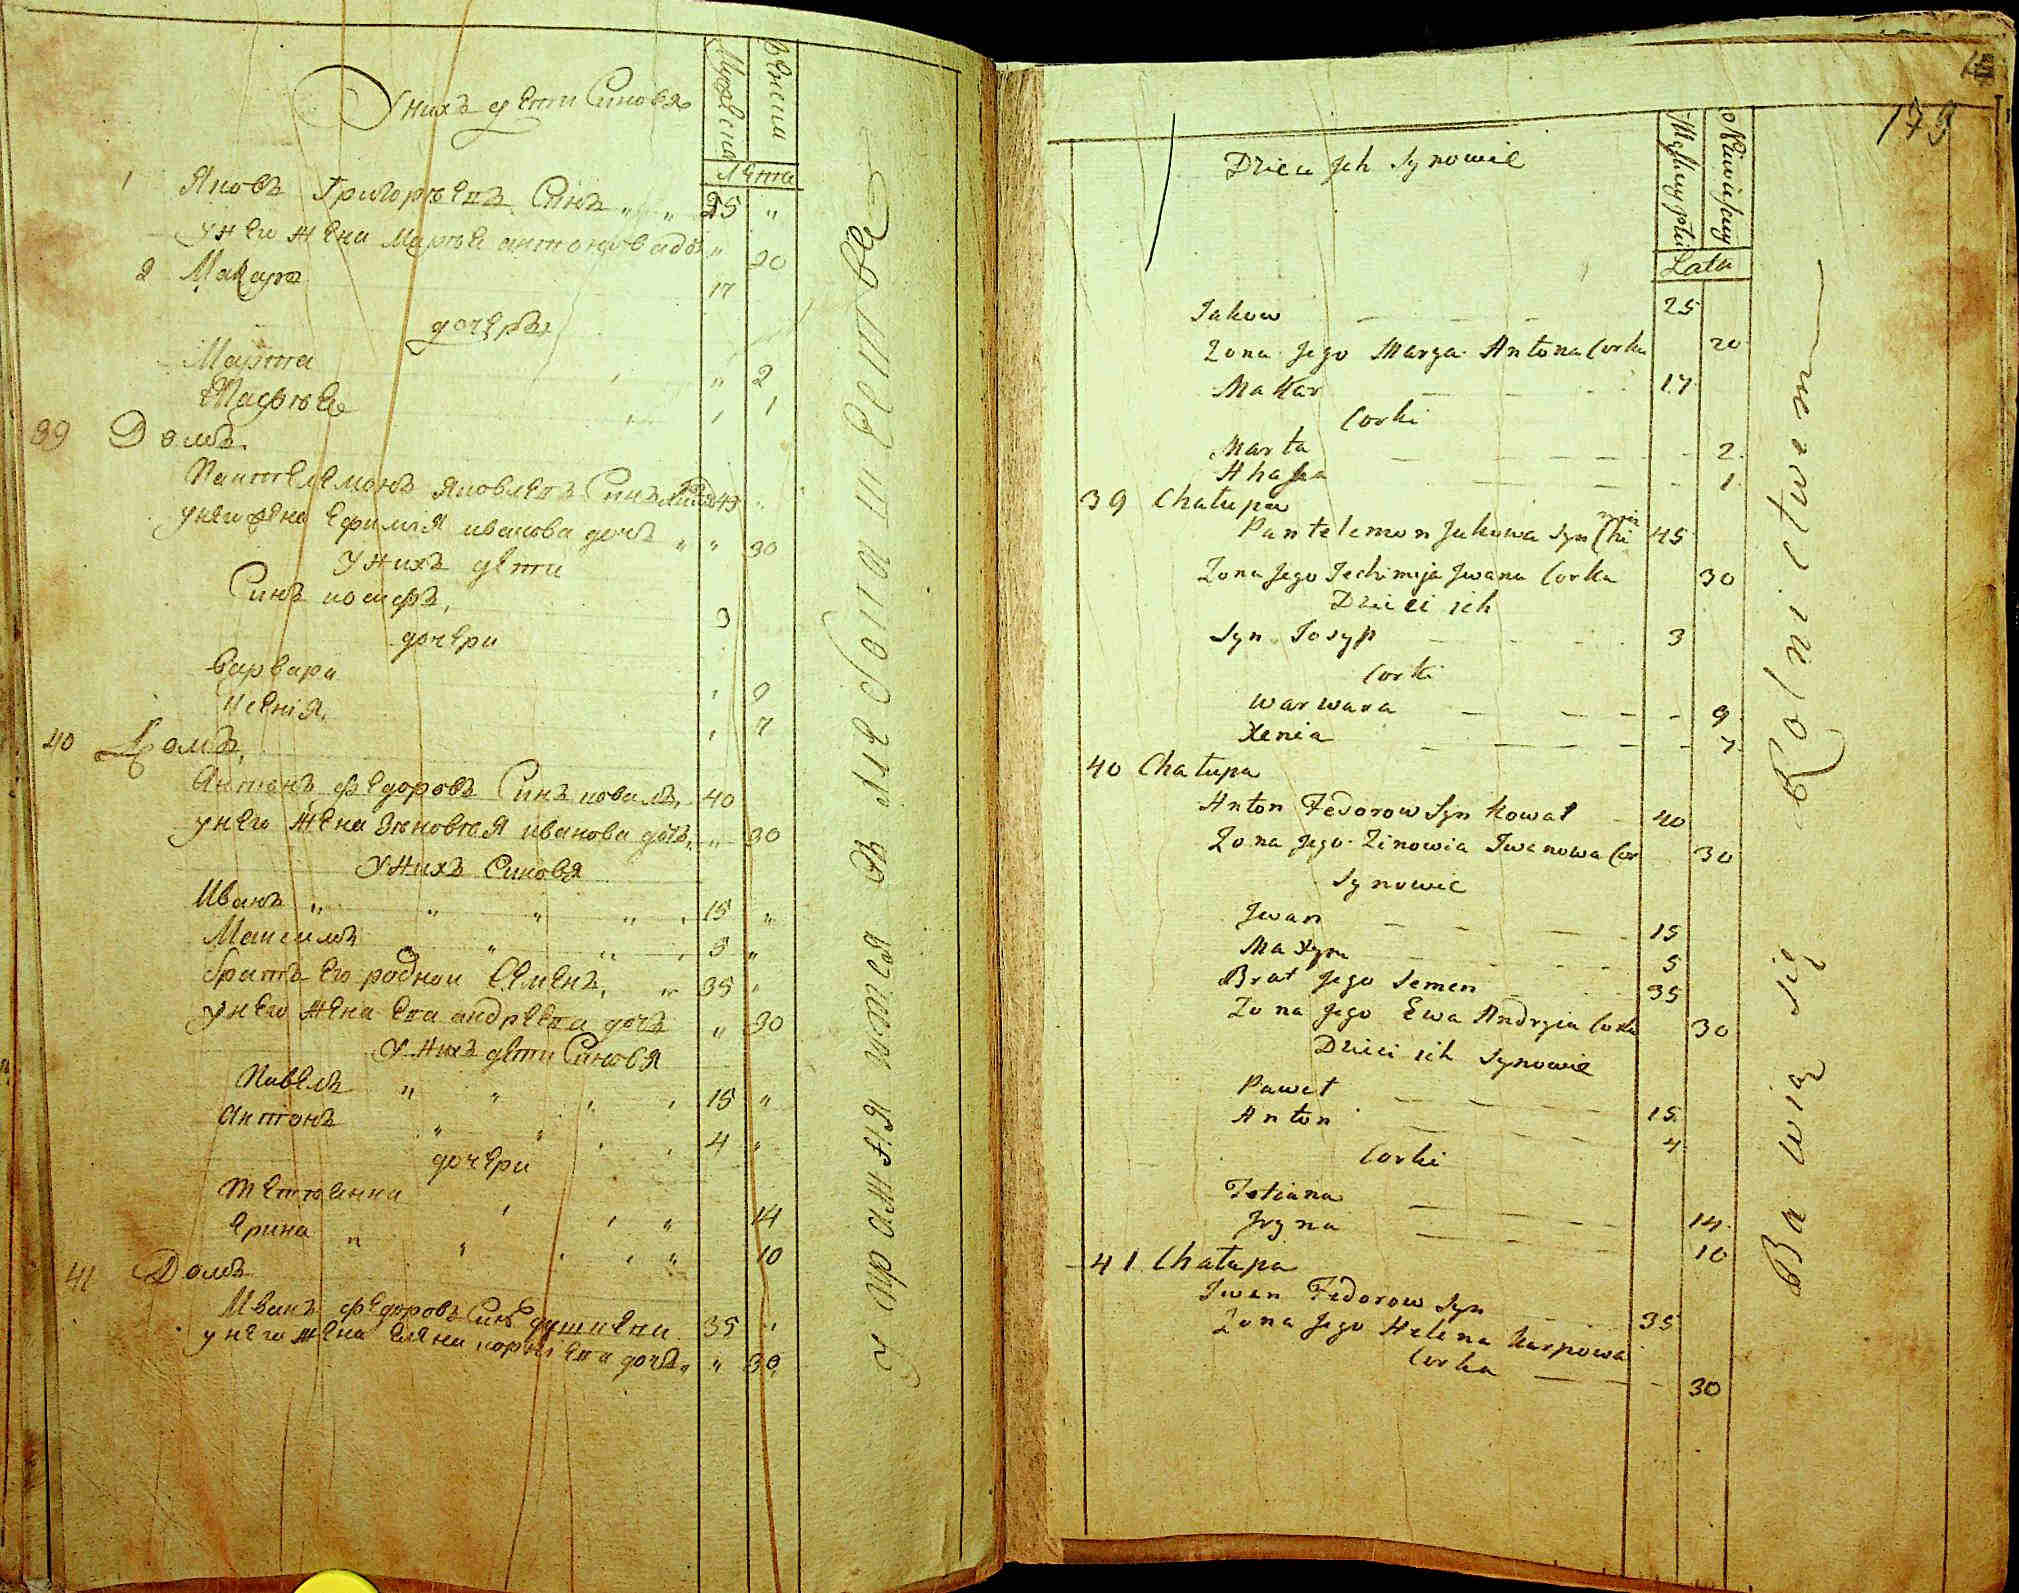 Унихъ дѣти Синовя
Мужеска
Женска
Лѣта
1 Яковъ Григорьевъ Синъ " " 25 "
унего жена Марья антонова до: " 20
2 Макаръ 17
дочерѣ
Марта " 2
Агафья 1
39 Домъ
Пантелемонъ Яковлевъ Синъ 45 "
унего жена Ефимія иванова дочь " " 30
Унихъ дѣти
Синъ иосифъ, 3
дочери
Варвара 9
Ксенія 7
40 Домъ,
Антонъ федоровъ Синъ коваль, 40
унего жена Зѣновия иванова дочь, " 30
Унихъ Синовя
Иванъ " " " " 15 "
Максимъ " " 5 "
братъ его родной Семенъ, " 35 "
унего жена Ева андреева дочь " 30
Унихъ дѣти Синовя
Павелъ " " " 15 "
Антонъ " " 4 "
дочери
Тетьянна " 14
Ерина " " " 10
41 Домъ
Иванъ федоровъ Синъ 35 "
унего жена Елена дочь " " 30
179
Dzieci Jch Synowie
Lata
Jakow 25
Zona Jego Marya Antona Corka 20
Makar 17
Corki
Marta 2
Ahafia 1
39 Chałupa
Pantelemon Jakowa Syn 45
Zona Jego Jechimija Jwana Corka 30
Dzieci ich
Syn Josyp 3
Corki
Warwara 9
Xenia 7
40 Chałupa
Anton Fedorow Syn Kowal 40
Zona Jego Zinowia Jwanowa Cor 30
Synowie
Jwan 15
Maxym 5
Brat Jego Semen 35
Zona Jego Ewa Andryia Corka 30
Dzieci ich Synowie
Paweł 15
Anton 4
Corki
Tetiana 14
Jryna 10
41 Chałupa
Jwan Fedorow Syn 35
Zona Jego Helena Karpowa
Corka 30
Bawią się Rolnictwem